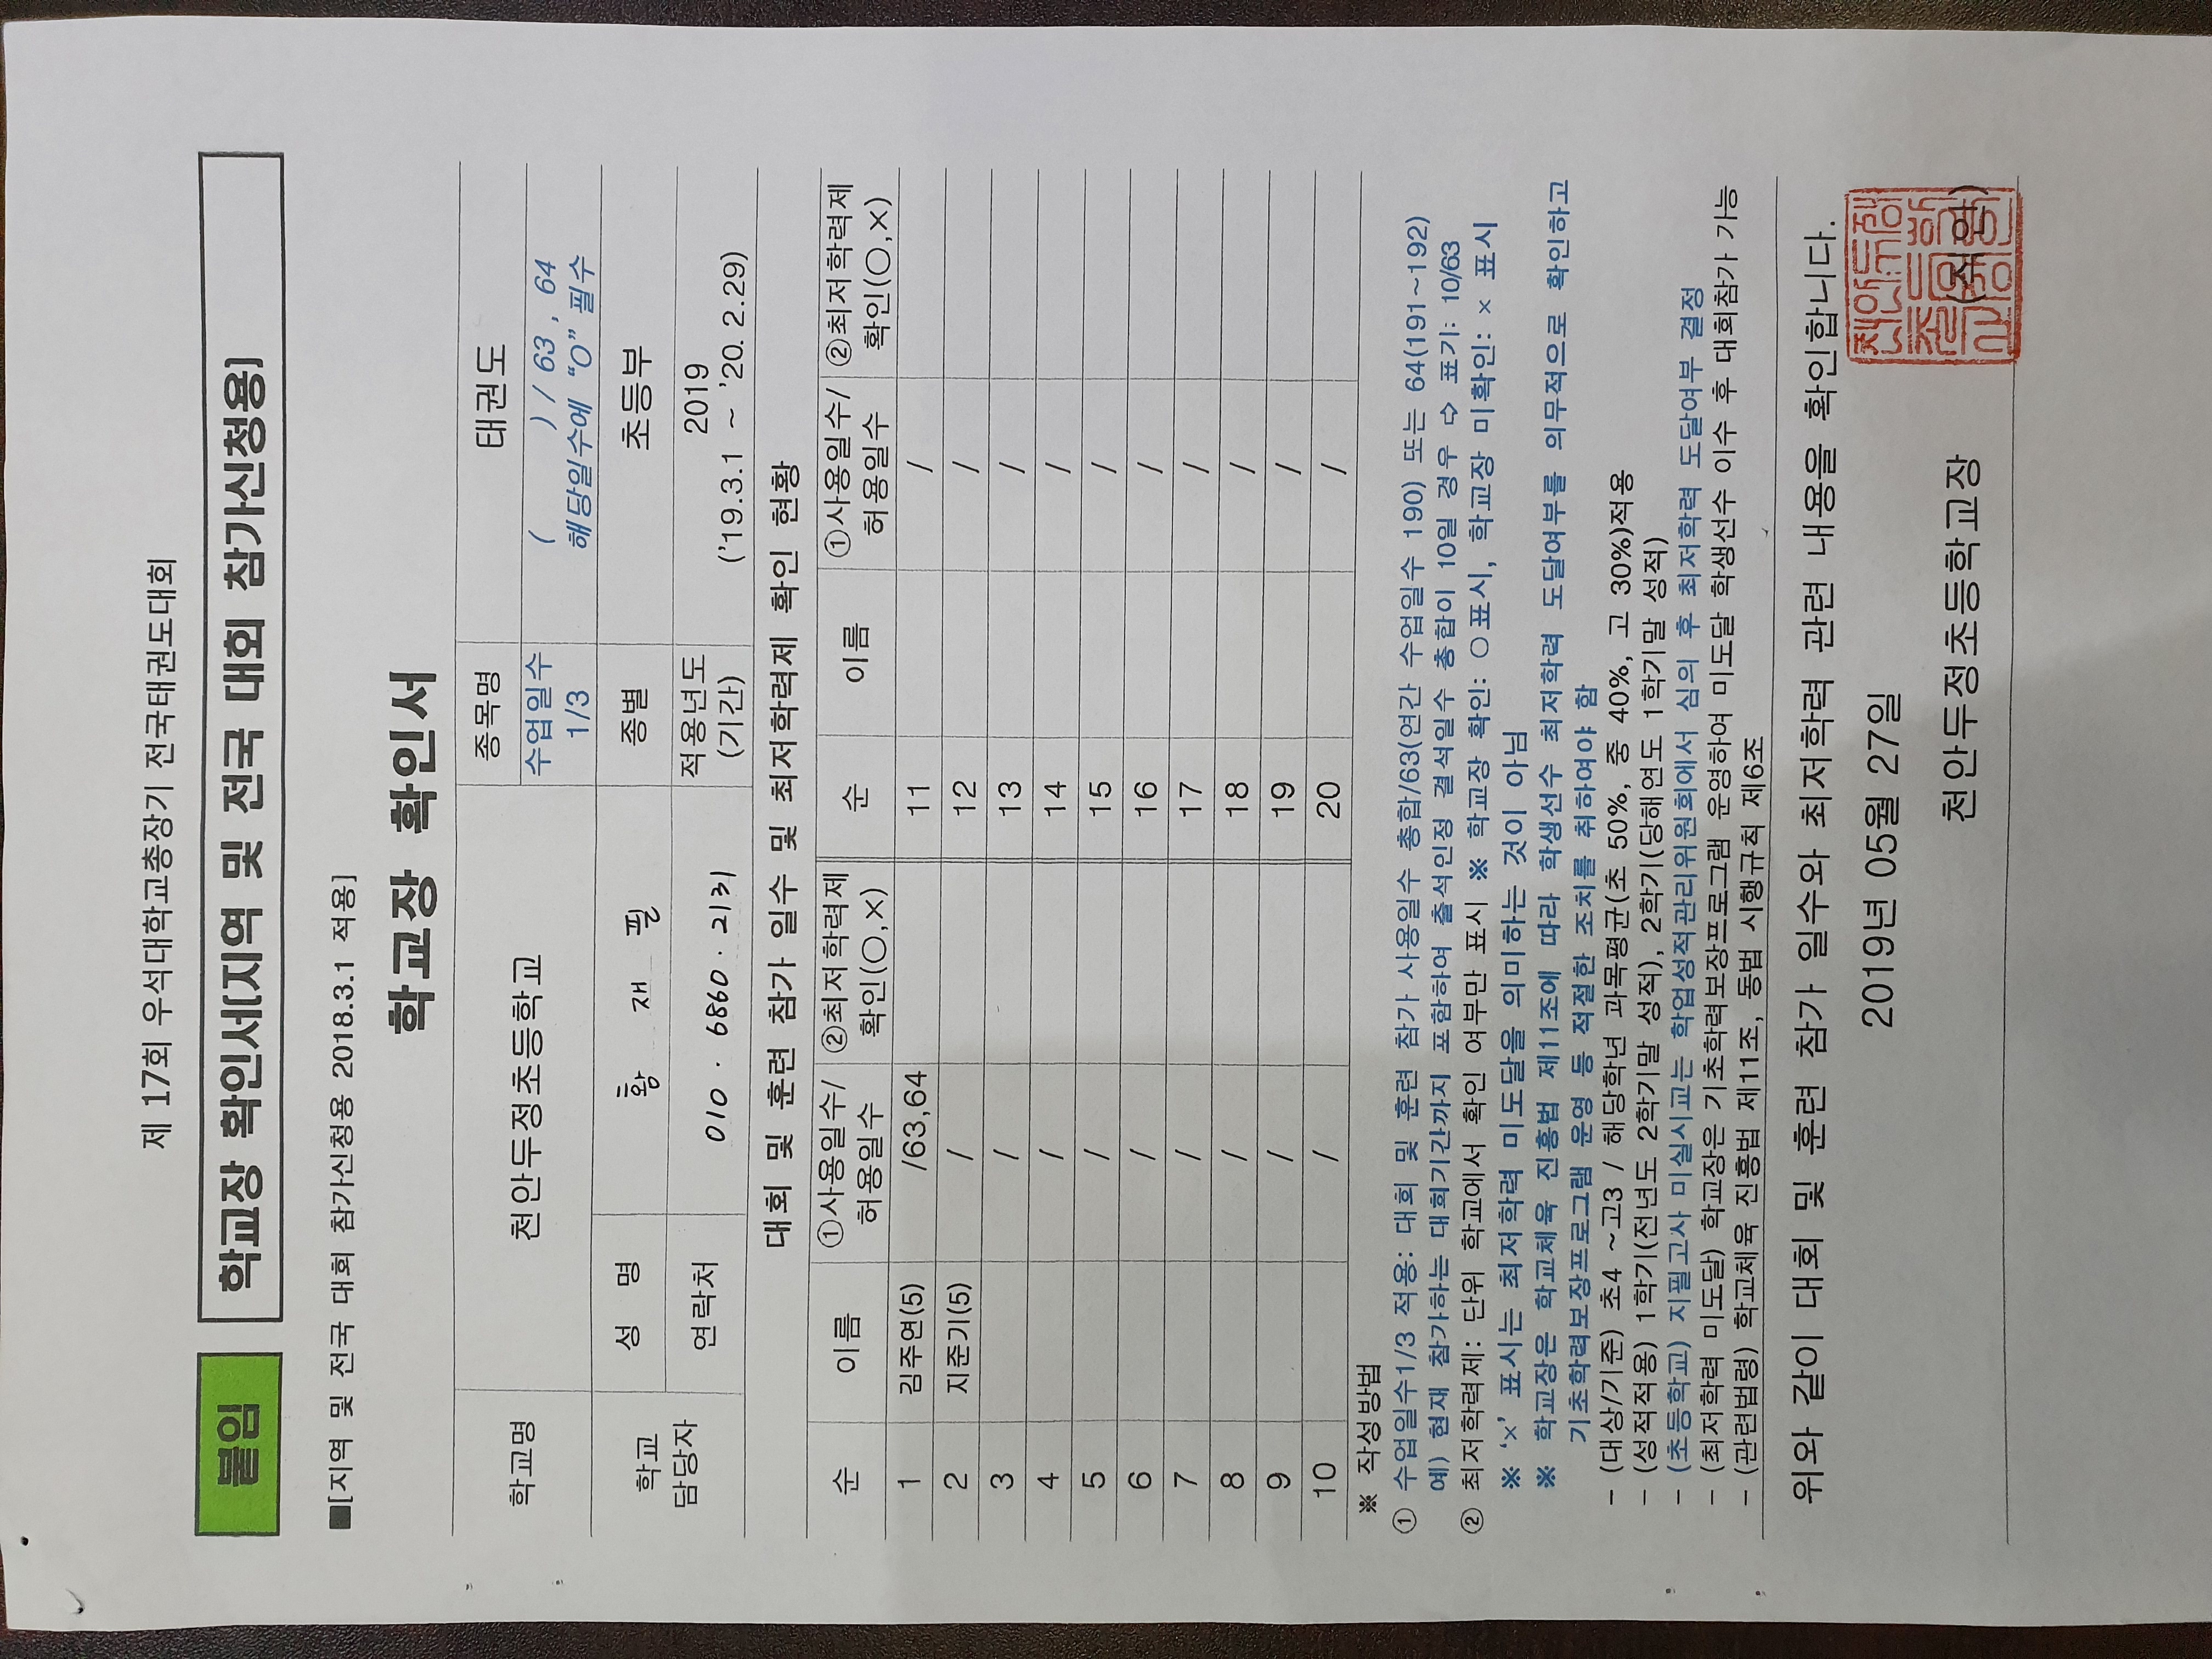 제 17회 우석대학교총장기 전국태권도대회
붙임 학교장 확인서[지역 및 전국 대회 참가신청용]
■[지역 및 전국 대회 참가신청용 2018.3.1 적용]
학교장 확인서
학교명 천안두정초등학교 종목명 태권도
수업일수 1/3 ( ) / 63 , 64
해당일수에 "O" 필수
학교 담당자 성 명 황 재 필 종별 초등부
연락처 010 . 6860 . 2131 적용년도 (기간) 2019
('19.3.1 ~ '20.2.29)
대회 및 훈련 참가 일수 및 최저학력제 확인 현황
순 이름 ①사용일수/허용일수 ②최저학력제 확인(○,×) 순 이름 ①사용일수/허용일수 ②최저학력제 확인(○,×)
1 김주연(5) /63,64 11 /
2 지준기(5) / 12 /
3 / 13 /
4 / 14 /
5 / 15 /
6 / 16 /
7 / 17 /
8 / 18 /
9 / 19 /
10 / 20 /
※ 작성방법
① 수업일수1/3 적용: 대회 및 훈련 참가 사용일수 총합/63(연간 수업일수 190) 또는 64(191~192)
예) 현재 참가하는 대회기간까지 포함하여 출석인정 결석일수 총합이 10일 경우 ⇨ 표기: 10/63
② 최저학력제: 단위 학교에서 확인 여부만 표시 ※ 학교장 확인: ○ 표시, 학교장 미확인: × 표시
※ '×' 표시는 최저학력 미도달을 의미하는 것이 아님
※ 학교장은 학교체육 진흥법 제11조에 따라 학생선수 최저학력 도달여부를 의무적으로 확인하고
기초학력보장프로그램 운영 등 적절한 조치를 취하여야 함
- (대상/기준) 초4 ~고3 / 해당학년 과목평균(초 50%, 중 40%, 고 30%)적용
- (성적적용) 1학기(전년도 2학기말 성적), 2학기(당해연도 1학기말 성적)
- (초등학교) 지필고사 미실시교는 학업성적관리위원회에서 심의 후 최저학력 도달여부 결정
- (최저학력 미도달) 학교장은 기초학력보장프로그램 운영하여 미도달 학생선수 이수 후 대회참가 가능
- (관련법령) 학교체육 진흥법 제11조, 동법 시행규칙 제6조
위와 같이 대회 및 훈련 참가 일수와 최저학력 관련 내용을 확인합니다.
2019년 05월 27일
천안두정초등학교장 (직인)